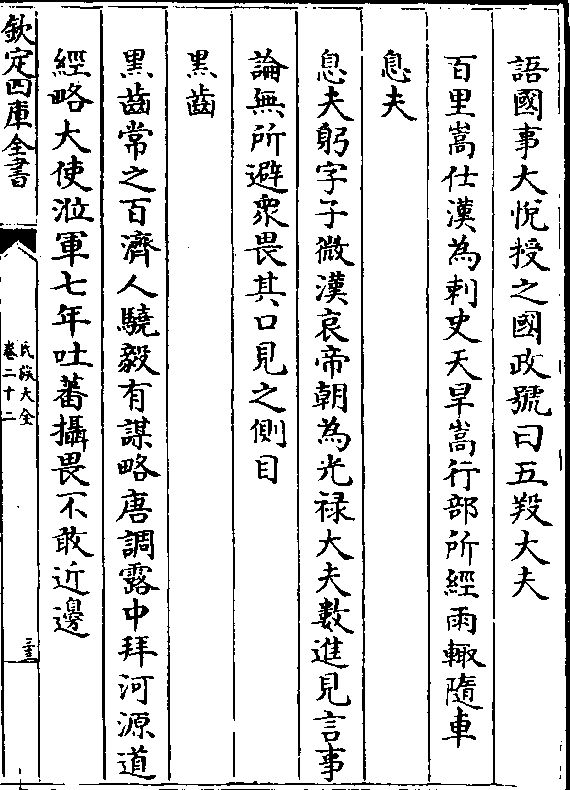 語國事大悅授之國政號曰五羖大夫
百里嵩仕漢為刺史天旱嵩行部所經雨輙隨車
息夫
息夫躬字子微漢哀帝朝為光禄大夫數進見言事
論無所避衆畏其口見之側目
黒齒
黒齒常之百濟人驍毅有謀略唐調露中拜河源道
經略大使涖軍七年吐蕃攝畏不敢近邊
欽定四庫全書
氏族大全
卷二十二